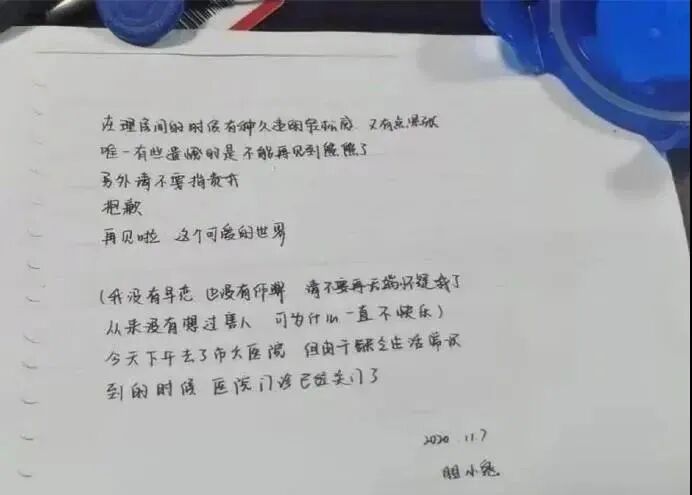 在理房间的时候有种久违的轻松感 又有点紧张
唯一有些遗憾的是 不能再见到熊熊了
另外 请不要指责我
抱歉
再见啦 这个可爱的世界
(我没有早恋 也没有作弊 请不要再无端怀疑我了
从来没有想过害人 可为什么一直不快乐)
今天下午去了市六医院 但由于缺乏生活常识
到的时候 医院门诊已经关门了
2020.11.7
胆小鬼